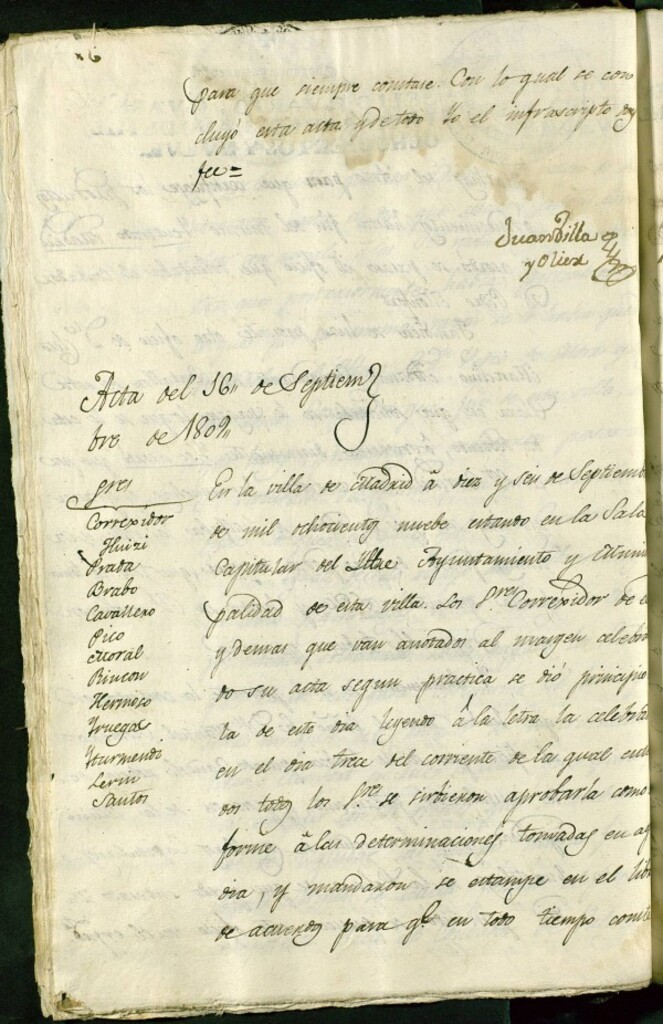 para que siempre constase. Con lo qual se con
cluyó esta acta y de todo Yo el infrascripto doy
fee=
Juan Villa
y Olier
Acta del 16,, de Septiem
bre de 1809,,
Sres
Correxidor
Huizi
Prada
Brabo
Cavallero
Pico
Moral
Rincon
Hermoso
Yruegas
Yturmendi
Lerin
Santos
En la villa de Madrid â diez y seis de Septiemb
de mil ochocientos nuebe estando en la Sala
Capitular del Illre Ayuntamiento y Muni
palidad de esta villa. Los Sres Correxidor de e
y demas que van anotados al margen celebr
do su acta segun practica se dió principio
la de este dia leyendo â la letra la celebra
en el dia trece del corriente de la qual ente
dos todos los Sres se sirbieron aprobarla como
forme â las determinaciones tomadas en aq
dia, y mandaron se estampe en el lib
de acuerdos para qe en todo tiempo conste